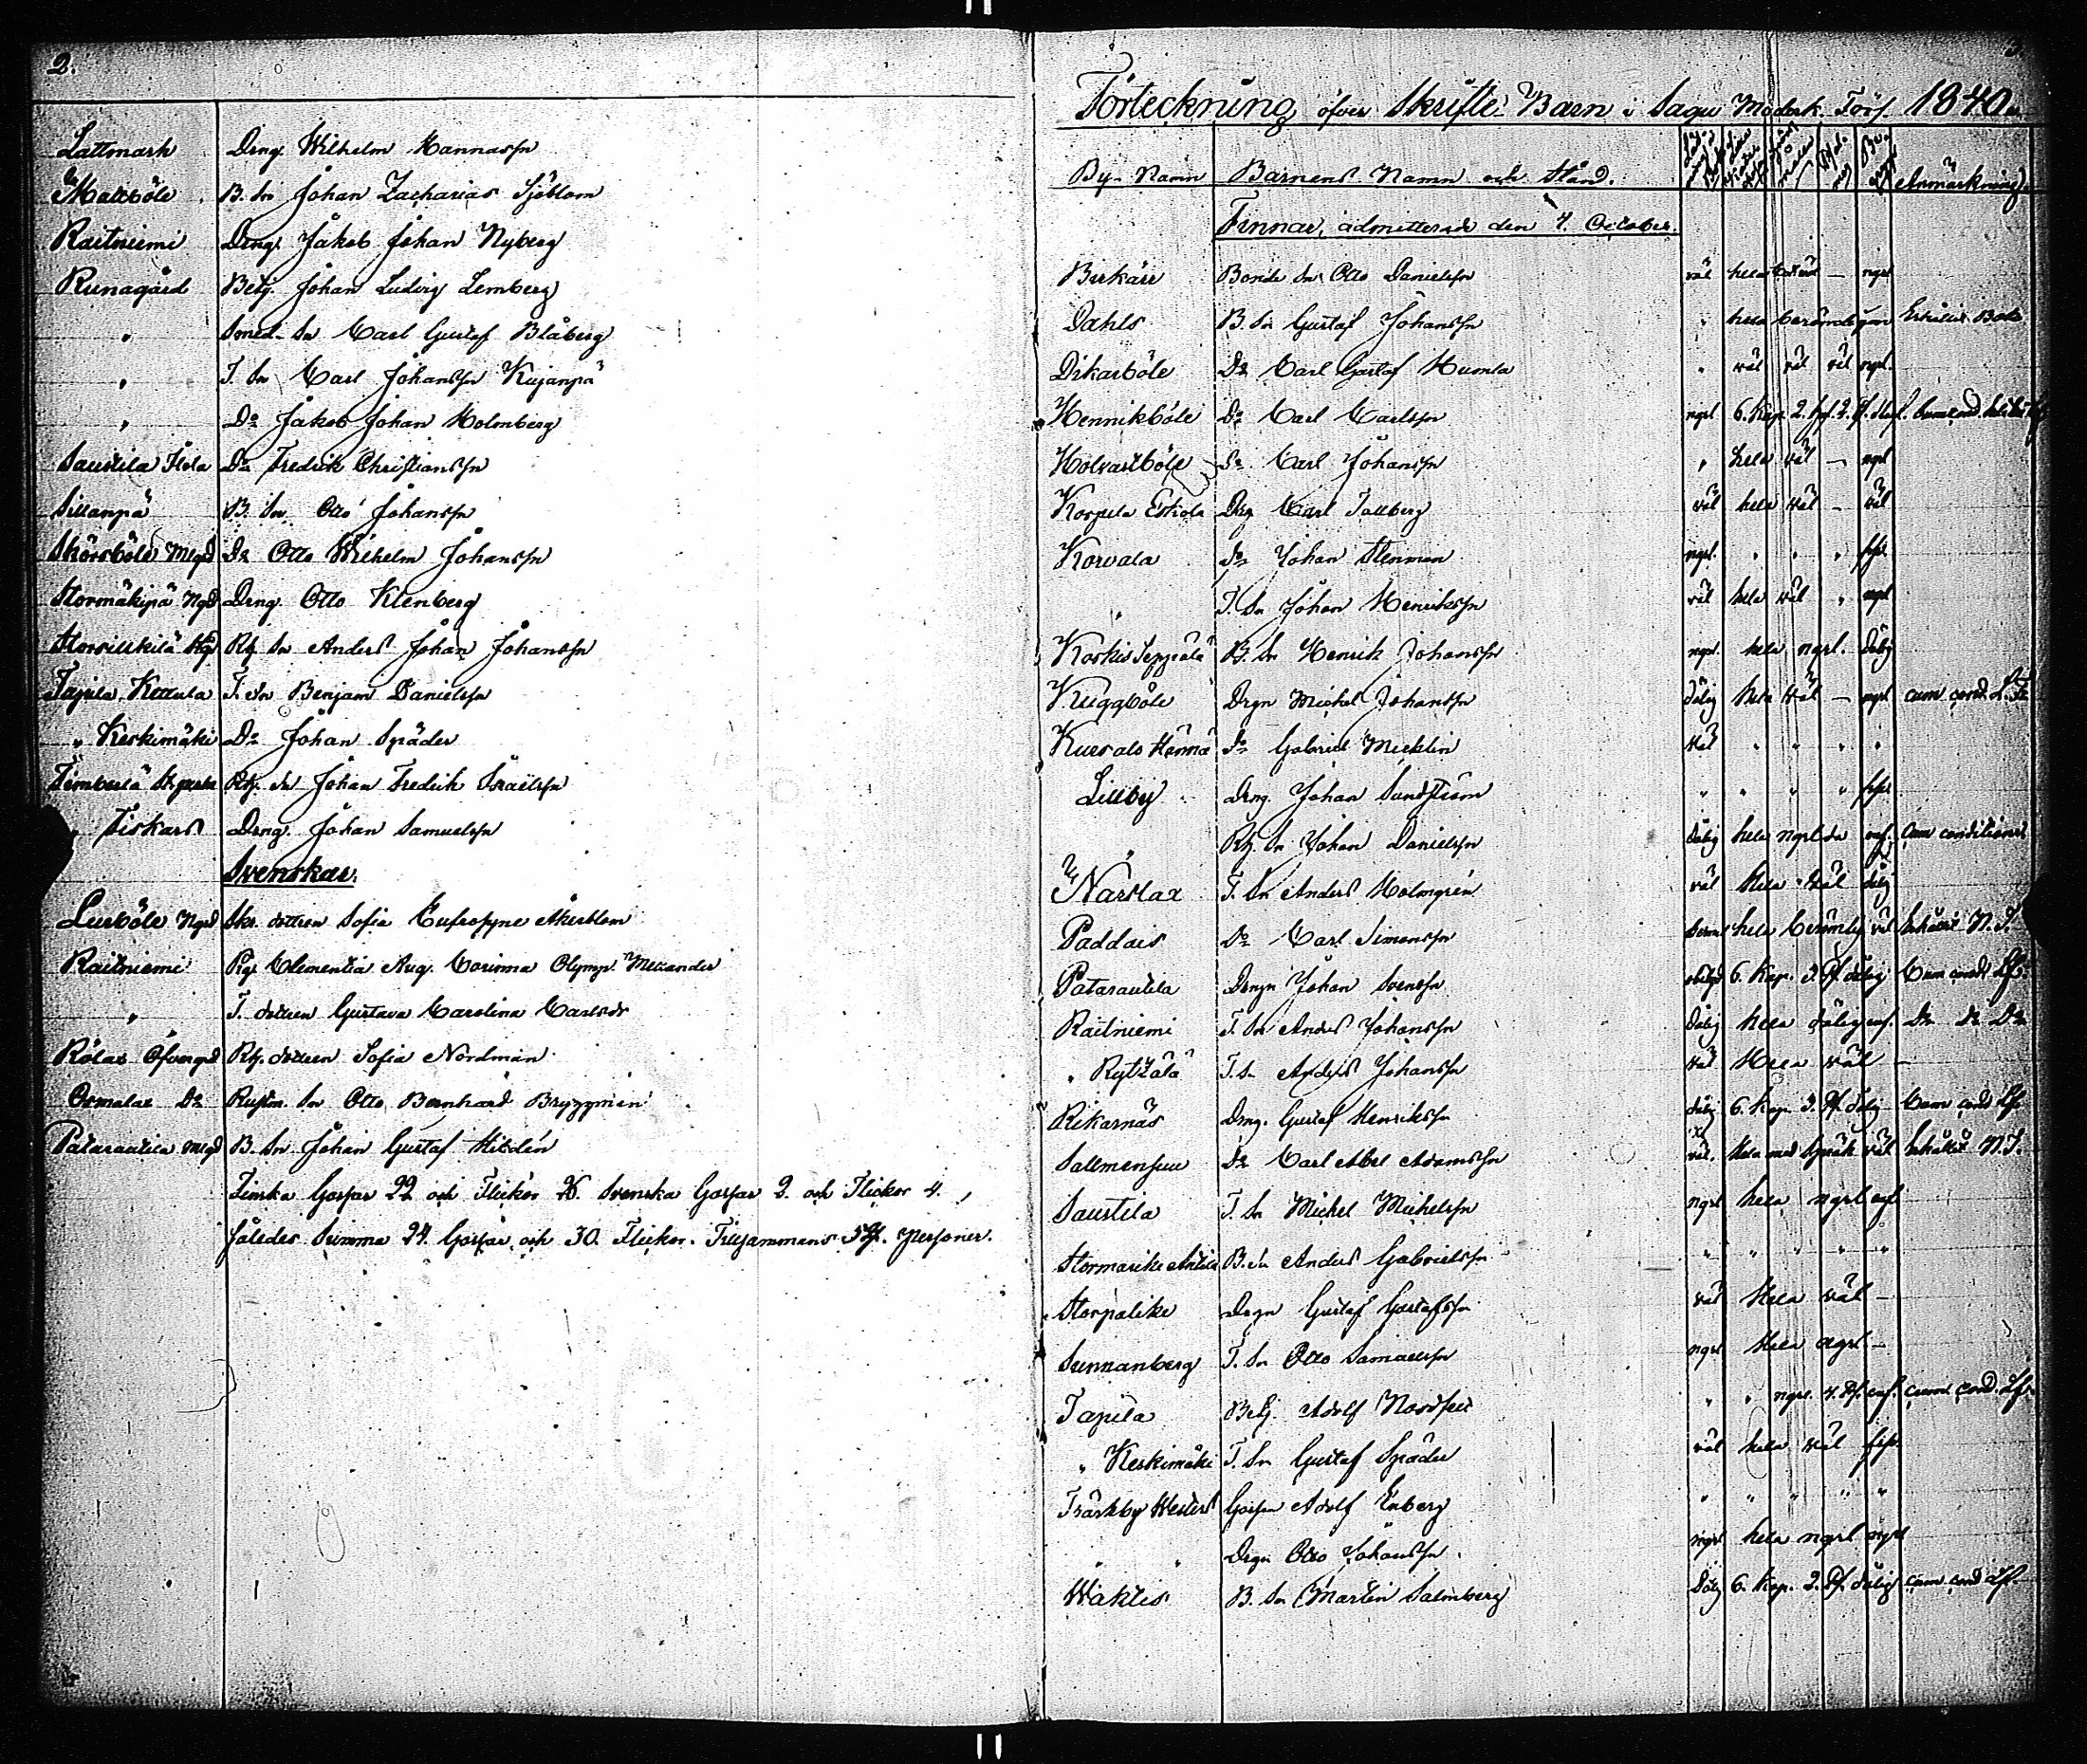 2.
Lattmark Drng Wilhelm Mannassn
Mattböle B. Sn Johan Zacharias Sjöblom
Raitniemi Drng. Jakob Johan Nyberg
Runagård Betj. Johan Ludvig Lemberg
" Smed-Sn Carl Gustaf Blåberg
" T. Sn Carl Johanssn Kujanpä
" Do Jakob Johan Holmberg
Saustila Do Fredrik Christianssn
Sillanpä B. Sn Otto Johanssn
Skörsböle Do Otto Wilhelm Johanssn
Stormäkipä Ngd Drng. Otto Klenberg
Anders Johan Johanssn
Tapila Kettula T. Sn Benjam Danielssn
" Keskimäki Do Johan Späder
Johan Fredrik Israelssn
" Fiskars Drng. Johan Samuelssn
Svenskar.
Lusböle Ngd dottren Sofia Eufrosyne Åkerblom
Raitniemi Clementia Aug. Corinna Olymp. Melander
" T. dottren Gustava Carolina Carlsdr
Rölax Öfvergd dottren Sofia Nordman
Osmalax Do Sn Otto Bernhard Bryggman
Patarautila B. Sn Johan Gustaf Hildén
Finska Gossar 22 och Flickor 26. Svenska Gossar 2. och Flickor 4.
således Summa 24. Gossar och 30. Flickor. Tillsammans 54. Personer.
3.
Förteckning öfver Skrifte-Barn i Sagu Moderk. Förs. 1840.
By-Namn Barnens Namn och Stånd. Anmärkning
Finnar, admitterade den 4. October.
Birkärr Bonde Sn Otto Danielssn väl hela — ngrl
Dahls B. Sn Gustaf Johanssn " hela
Dikarböle Do Carl Gustaf Humla " väl väl väl ngrl.
Hennikböle Do Carl Carlssn ngrl 6. Kap. 2.
Holvastböle Do Carl Johanssn " hela väl — ngrl
Korpela Eskola Drg Carl Tallberg väl hela väl — väl
Korvala Do Johan Stenman ngrl. " " "
" T. Sn Johan Henrikssn väl hela väl " ngrl
Koskis Seppälä B. Sn Henrik Johanssn ngrl. hela ngrl. dålig
Kuggböle Drgn Michel Johanssn dålig hela väl — ngrl cum cond.
Do Gabriel Micklin väl " " " "
Lillby Drng. Johan Sundström " " " "
" Sn Johan Danielssn dålig hela ngrl cum conditione
Närslax T. Sn Anders Holmgrén väl hela väl
Paddais Do Carl Simonssn hela väl
Patarautila Drngn Johan Svenssn 6. Kap. 3. dålig Cum cond
Raitniemi T. Sn Anders Johanssn dålig hela dålig Do Do Do
" Rytzälä T. Sn Anders Johanssn väl Hela väl —
Rikarnäs Drng. Gustaf Henrikssn dålig 6. Kap. 3. dålig Cum cond
Sallmensuu Do Carl Abel Adamssn väl. väl N.T.
Saustila T. Sn Michel Michelssn ngrl hela ngrl ngrl
B. Sn Anders Gabrielssn " " " " "
Storpalike Drgn Gustaf Gustafssn väl Hela väl —
Sunnanberg T. Sn Otto Samuelssn ngrl Hela ngrl —
Tapila Betj. Adolf " " ngrl. cum cond.
" Keskimäki T. Sn Gustaf Späder väl hela väl
Träskby Gossen Adolf Enberg " " " " "
" " Drgn Otto Johanssn. ngrl hela ngrl ngrl
Waktis B. Sn Martin Salmberg dålig 6. Kap. 2. dålig cum cond